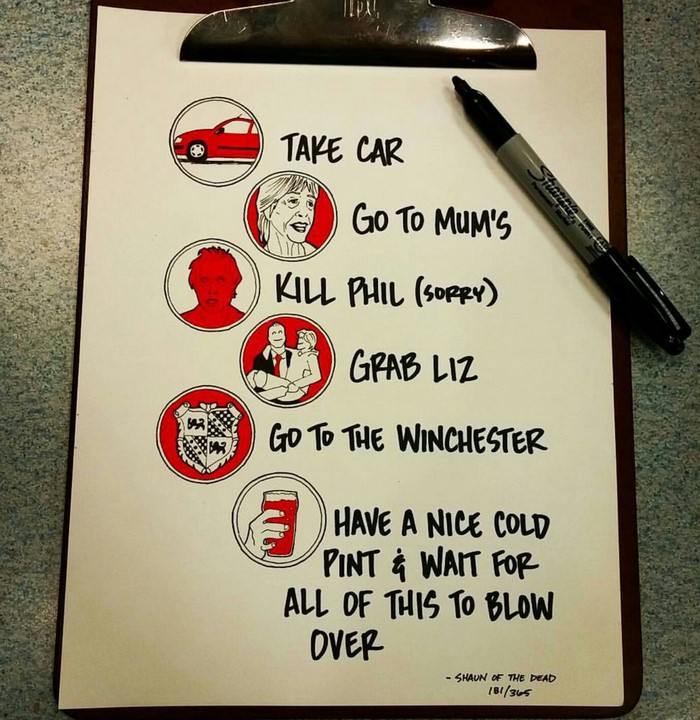 TAKE CAR
GO TO MUM'S
KILL PHIL (SORRY)
GRAB LIZ
GO TO THE WINCHESTER
HAVE A NICE COLD
PINT & WAIT FOR
ALL OF THIS TO BLOW
OVER
- SHAUN OF THE DEAD
181/365
Sharpie